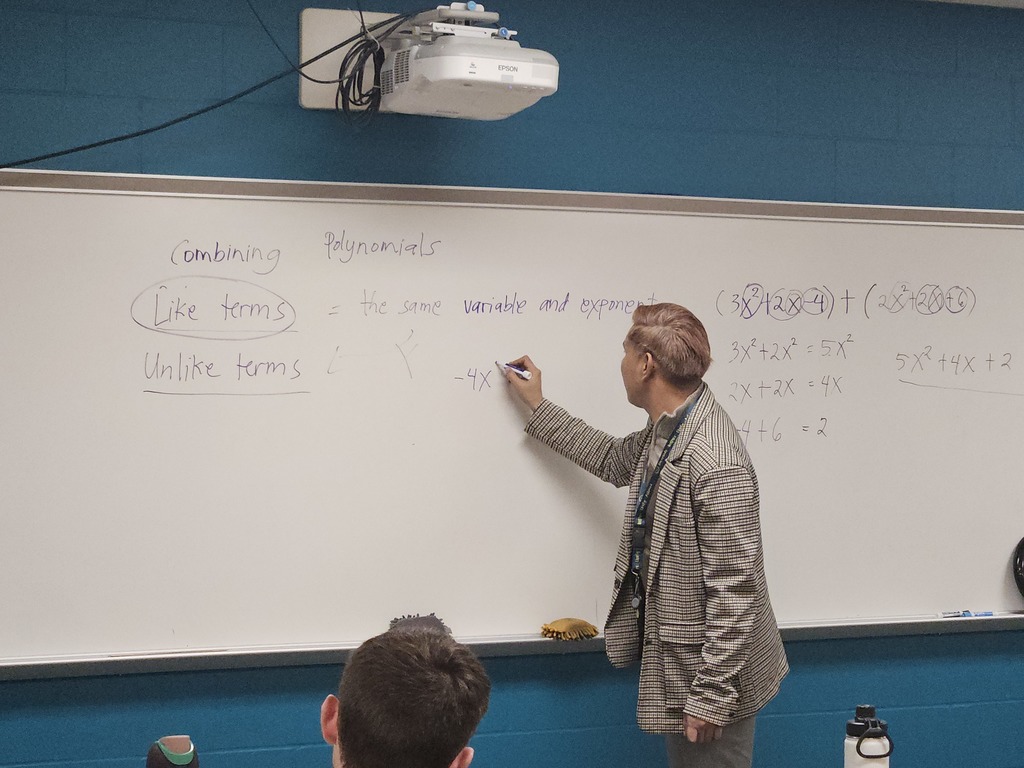 EPSON
Combining Polynomials
Like terms = the same variable and exponent
Unlike terms
-4x
(3x²+2x-4) + (2x²+2x+6)
3x²+2x² = 5x²
2x+2x = 4x
4+6 = 2
5x²+4x+2